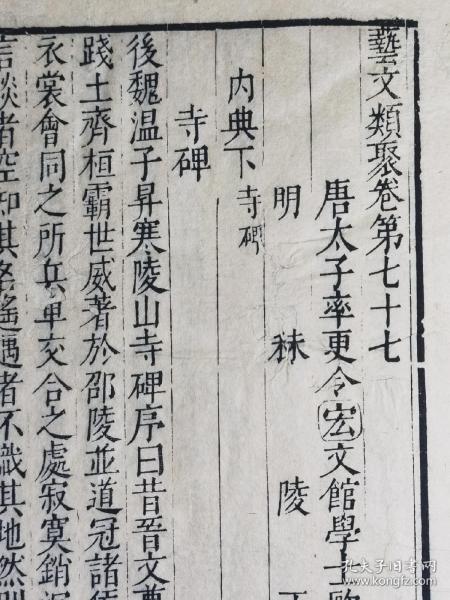 藝文類聚卷第七十七
唐太子率更令宏文館學士歐
明 秣 陵 王
內典下寺碑
寺碑
後魏温子昇寒陵山寺碑序曰昔晉文尊
踐土齊桓霸世威著於邵陵並道冠諸侯
衣裳會同之所兵車交合之處寂寞銷沉
言談者空知其名遙遇者不識其地然則
孔夫子旧书网